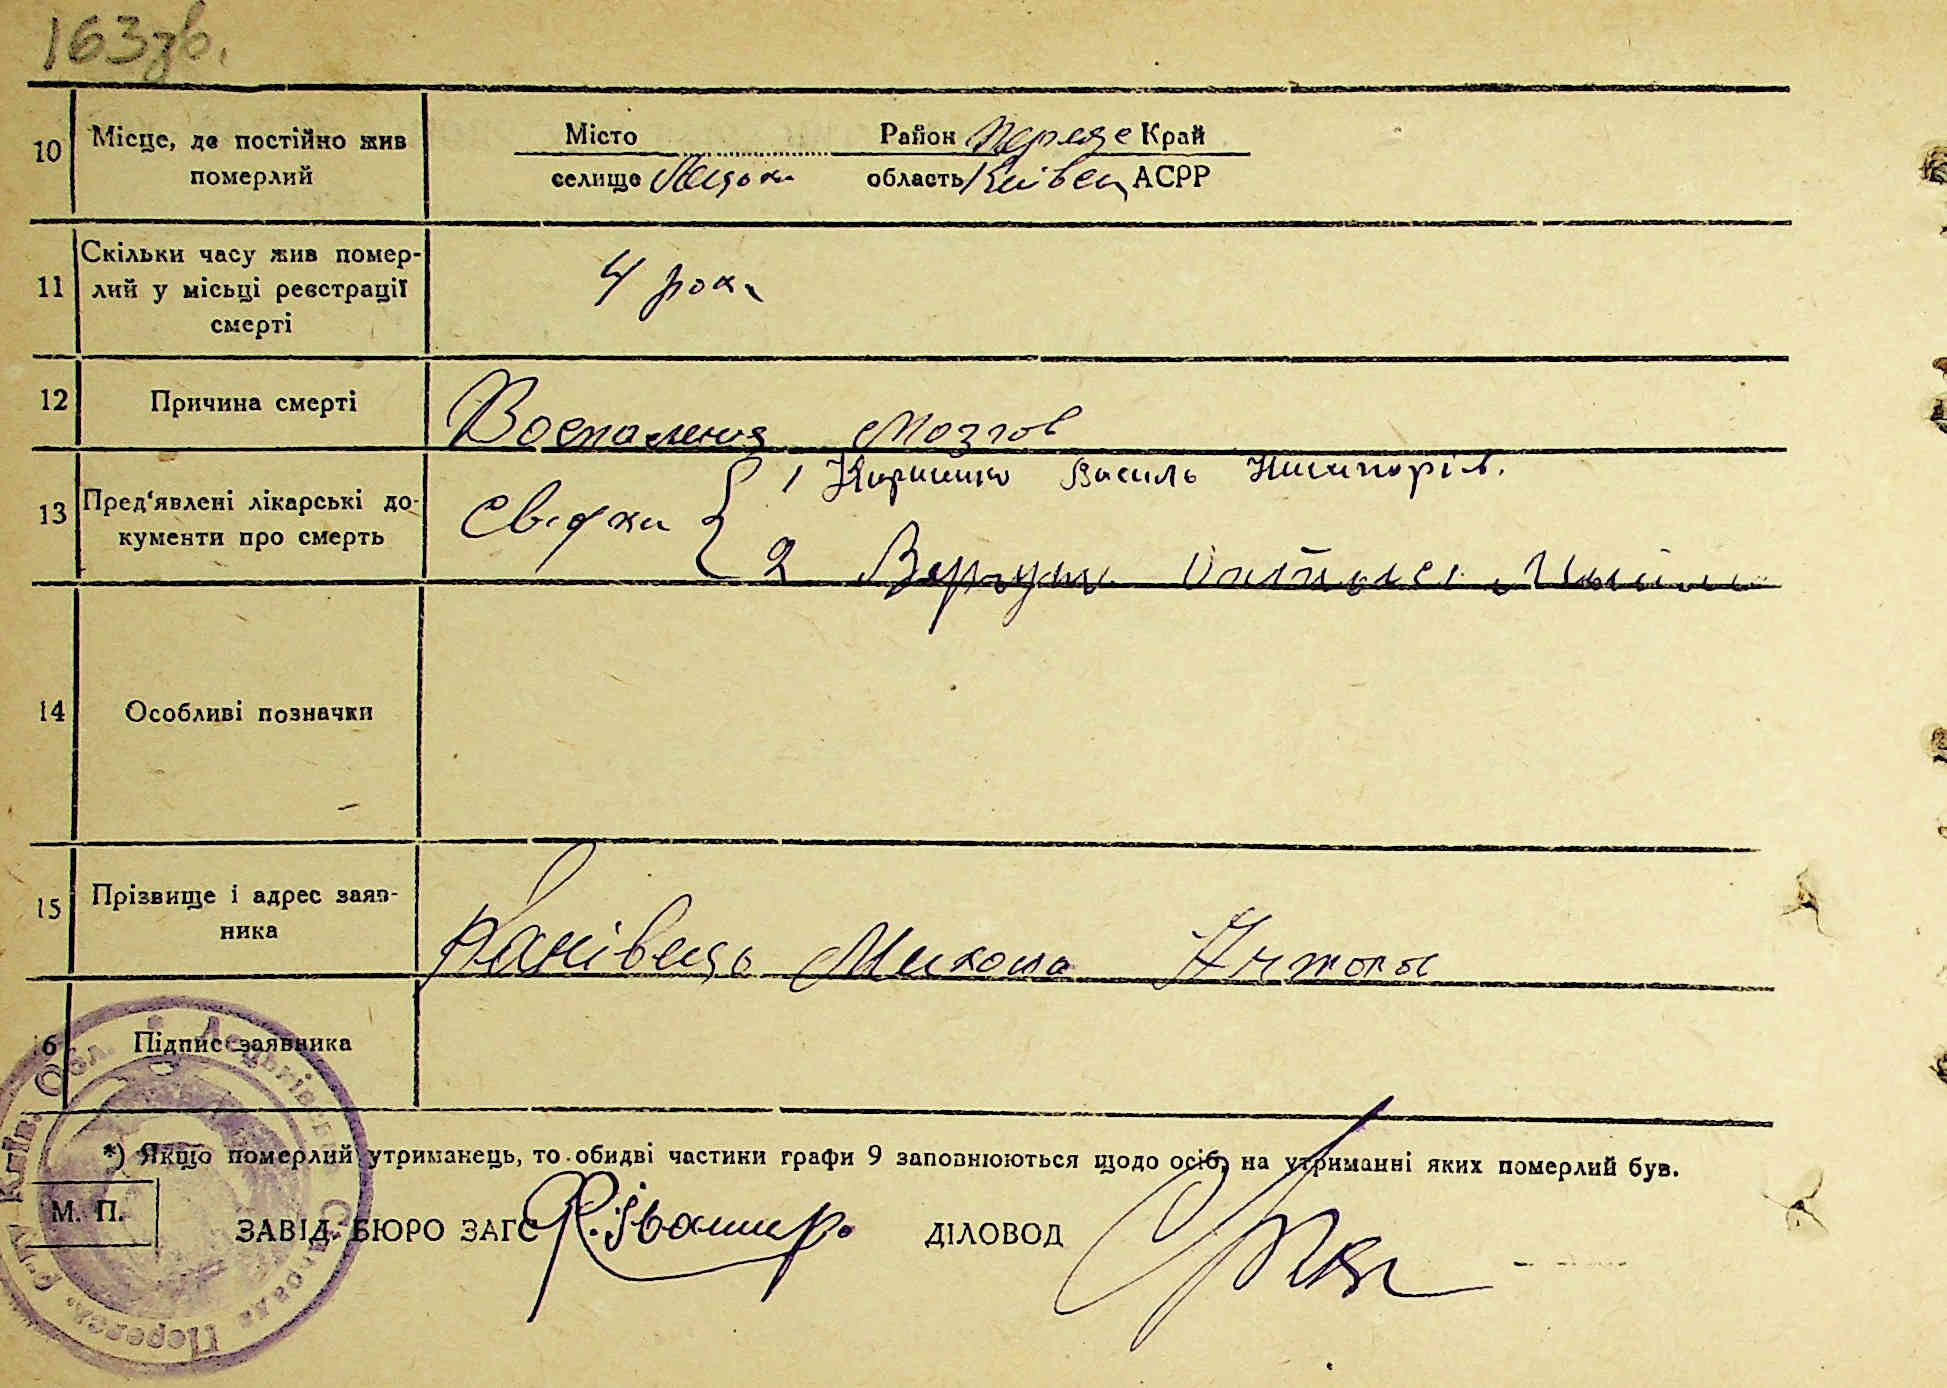 163зв.
10 Місце, де постійно жив померлий
Місто Район Переяс Край
селище область Київськ АСРР
11 Скільки часу жив помер-
лий у місьці реєстрації
смерті
4 рок.
12 Причина смерті
Воспаления мозгов
13 Пред'явлені лікарські до-
кументи про смерть
Свідки 1 Василь
2
14 Особливі позначки
15 Прізвище і адрес заяв-
ника
Канівець Микола
16 Підпис заявника
*) Якщо померлий утриманець, то обидві частини графи 9 заповнюються щодо осіб, на утриманні яких померлий був.
М. П.
ЗАВІД. БЮРО ЗАГС ДІЛОВОД